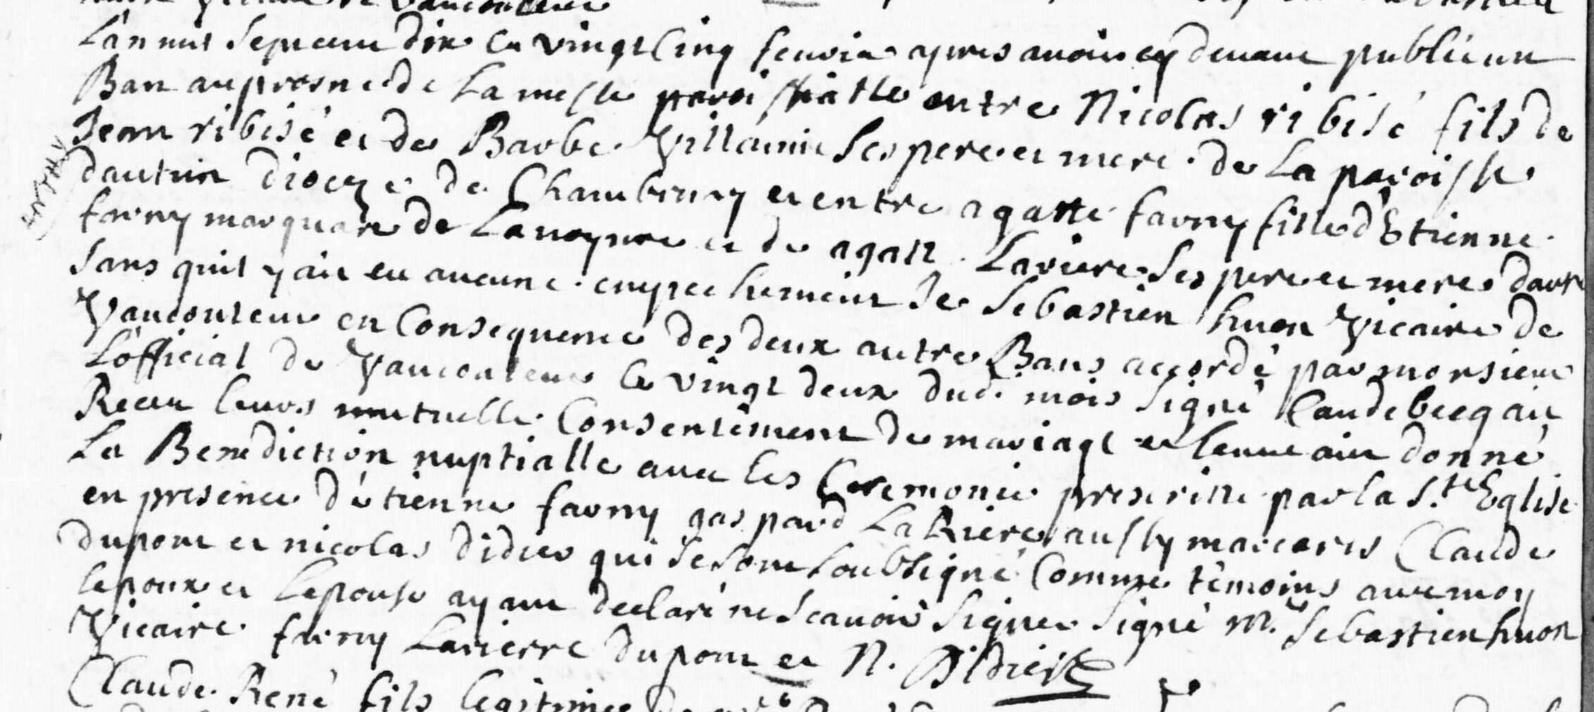 Lan mil sept cent dix le vingt cinq fevrier apres avoir cy devant publié un
Ban au prosne de La messe paroissialle entre Nicolas ribisé fils de
Jean ribisé et de Barbe Villaume Ses pere et mere de La paroisse
dautrin dioceze de et entre agatte favny fille d'Etienne
favny marquare de et de agatte Laviere Ses pere et meres
Sans quil y ait eu aucune empechement Je Sebastien huon Vicaire de
Vaucouleur en Consequence des deux autre Bans accordé par monsieur
L'official de Vaucouleur le vingt deux dud. mois Signé Caudebecq ait
Receu leurs mutuelle Consentement de mariage et leur ait donné
La Benediction nuptialle avec les Ceremonie prescritte par la S.te Eglise
en presence d'etienne favny gaspard La Riere aussy marcaris Claude
dupont et nicolas didier qui se sont soubsigné Comme témoins avec moy
lepoux et Lepouse ayant declaré ne Scavoir Signer Signé M.r Sebastien huon
Vicaire favny Lavierre dupont et N. Didier
Claude René fils legitime